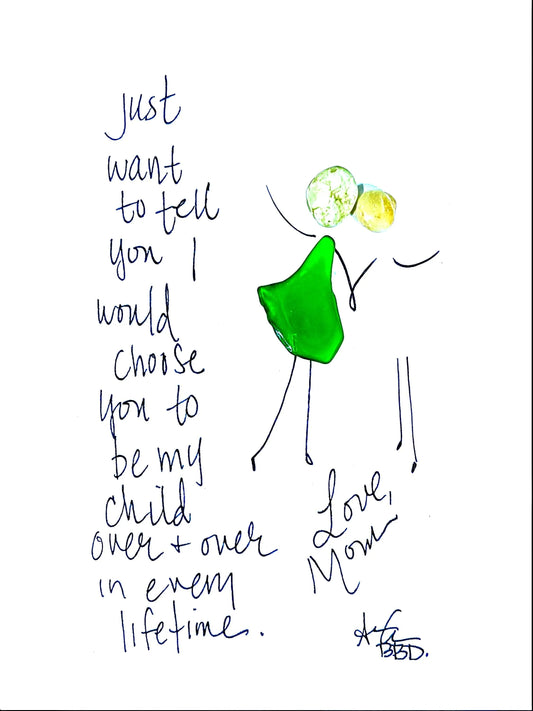 just
want
to tell
you I
would
choose
you to
be my
child
over + over
in every
lifetime.
Love,
Mom
BBD.